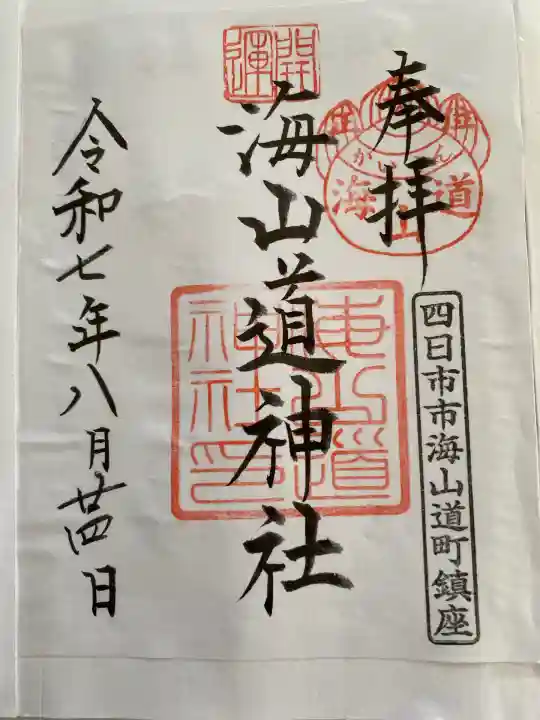 奉拝
かいさん
海山道
四日市市海山道町鎮座
開運
海山道神社
海山道神社印
令和七年八月廿四日